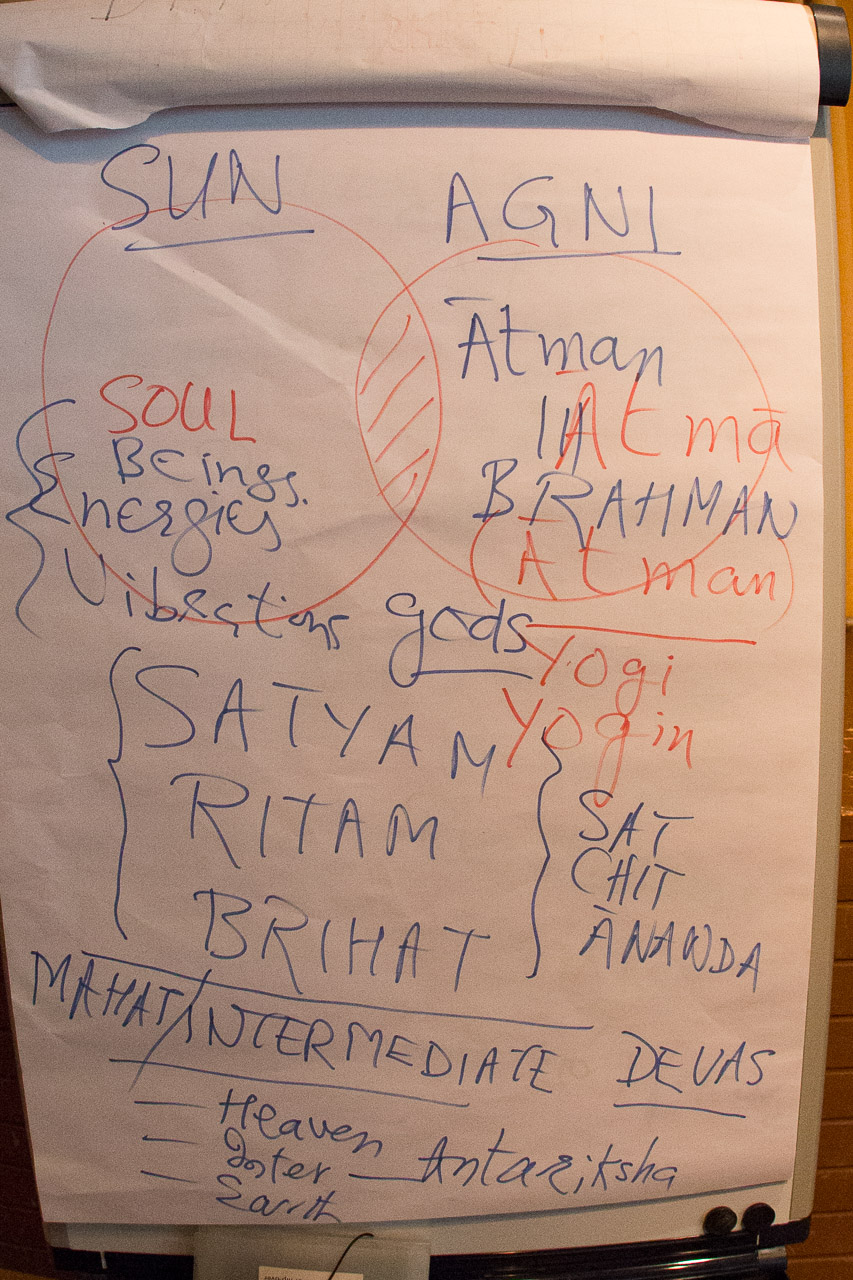 SUN
AGNI
Ātman
Atmā
SOUL
BEings.
ENERgiEs
BRAHMAN
(Atman)
Vibrations
gods
yogi
yogin
SATYAM
RITAM
BRIHAT
SAT
CHIT
ĀNANDA
MAHAT/INTERMEDIATE DEVAS
— Heaven
— Inter — Antariksha
— Earth